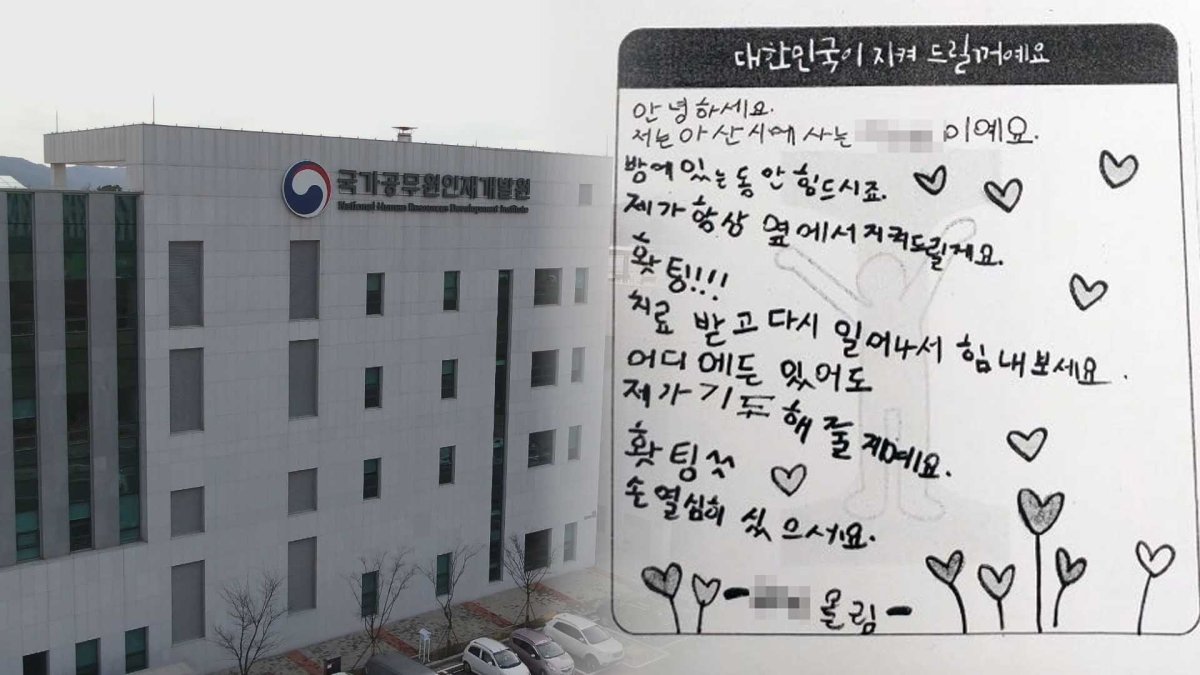 국가공무원인재개발원
National Human Resources Development Institute
대한민국이 지켜 드릴꺼예요
안녕하세요.
저는 아산시에 사는 이예요.
방에 있는동안 힘드시죠.
제가 항상 옆에서 지켜드릴게요.
홧팅!!!
치료 받고 다시 일어나서 힘내보세요.
어디에든 있어도
제가 기도 해 줄 께예요.
홧팅
손 열심히 씼으세요.
- 올림 -